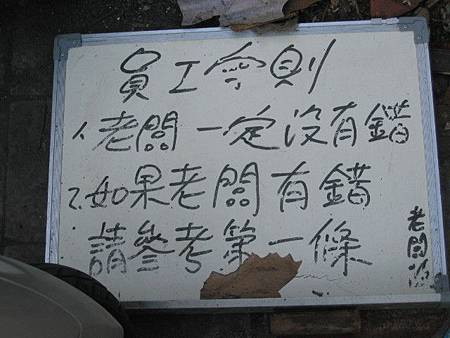 員工守則
1.老闆一定沒有錯
2.如果老闆有錯
請參考第一條
老闆